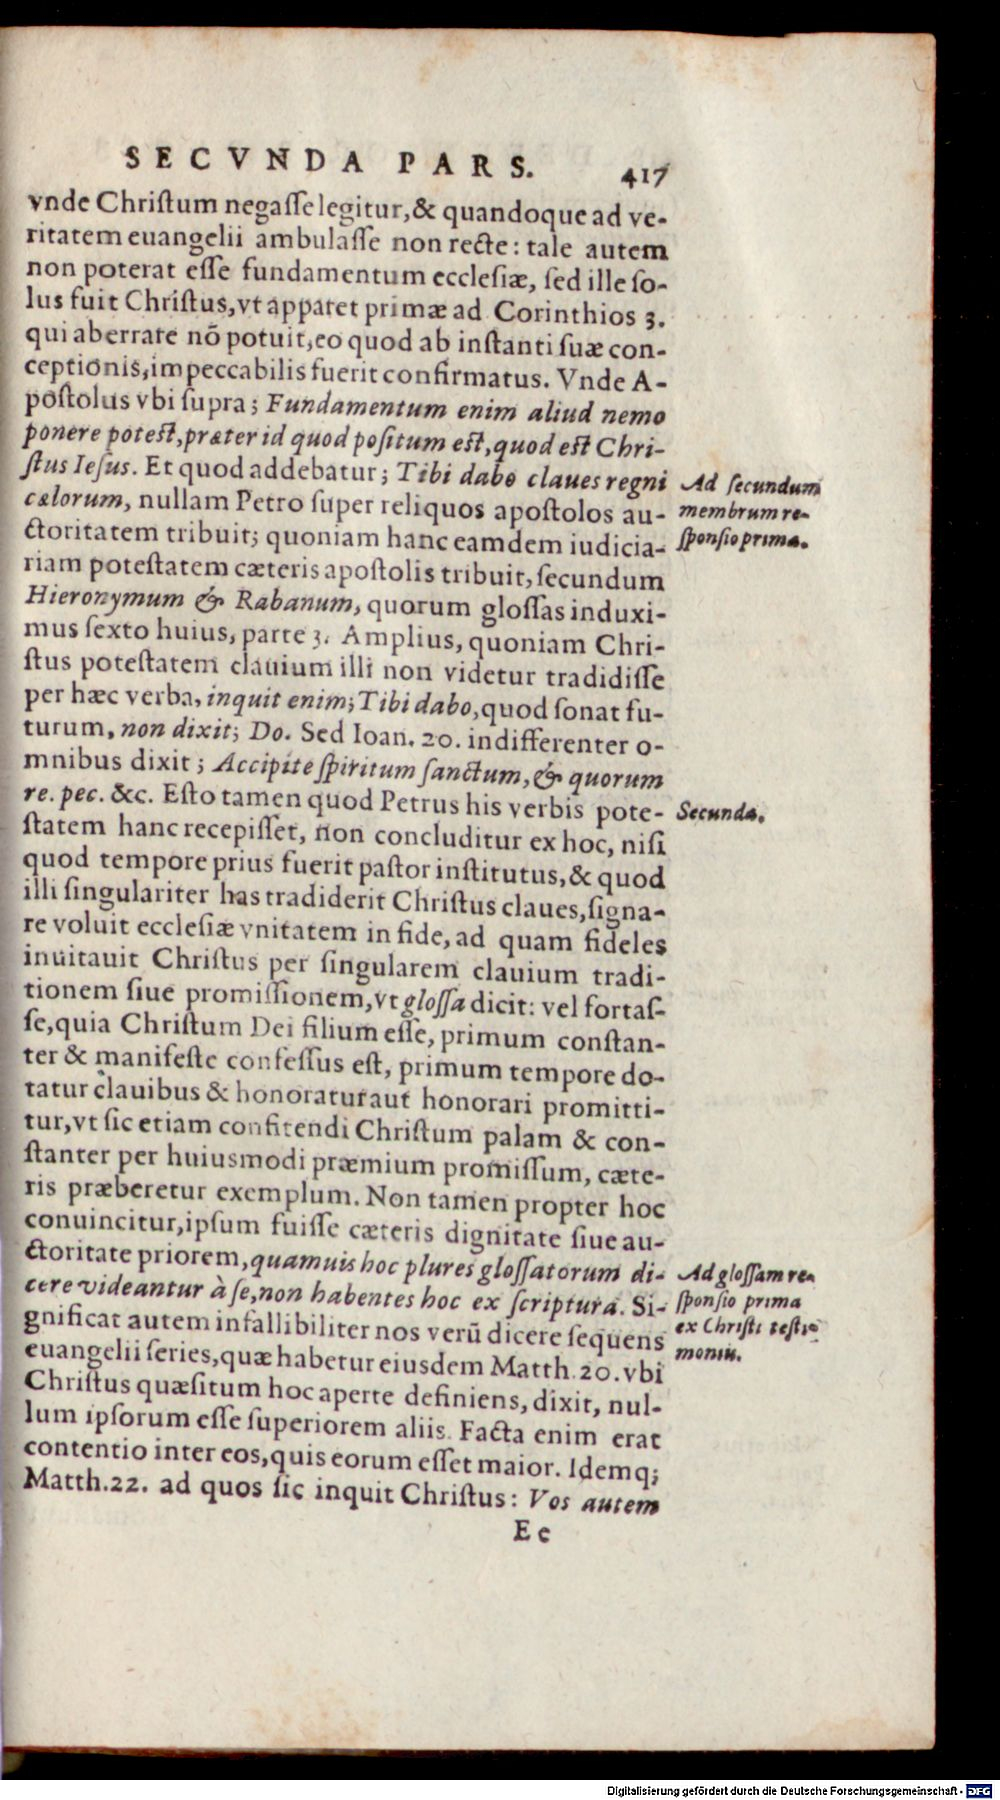 SECVNDA PARS. 417
vnde Christum negasse legitur, & quandoque ad ve-
ritatem euangelii ambulasse non recte: tale autem
non poterat esse fundamentum ecclesiæ, sed ille so-
lus fuit Christus, vt apparet primæ ad Corinthios 3.
qui aberrare nõ potuit, eo quod ab instanti suæ con-
ceptionis, impeccabilis fuerit confirmatus. Vnde A-
postolus vbi supra; Fundamentum enim aliud nemo
ponere potest, præter id quod positum est, quod est Chri-
stus Iesus. Et quod addebatur; Tibi dabo claues regni
cælorum, nullam Petro super reliquos apostolos au-
ctoritatem tribuit; quoniam hanc eamdem iudicia-
riam potestatem cæteris apostolis tribuit, secundum
Hieronymum & Rabanum, quorum glossas induxi-
mus sexto huius, parte 3. Amplius, quoniam Chri-
stus potestatem clauium illi non videtur tradidisse
per hæc verba, inquit enim; Tibi dabo, quod sonat fu-
turum, non dixit; Do. Sed Ioan. 20. indifferenter o-
mnibus dixit; Accipite spiritum sanctum, & quorum
re. pec. &c. Esto tamen quod Petrus his verbis pote-
statem hanc recepisset, non concluditur ex hoc, nisi
quod tempore prius fuerit pastor institutus, & quod
illi singulariter has tradiderit Christus claues, signa-
re voluit ecclesiæ vnitatem in fide, ad quam fideles
inuitauit Christus per singularem clauium tradi-
tionem siue promissionem, vt glossa dicit: vel fortas-
se, quia Christum Dei filium esse, primum constan-
ter & manifeste confessus est, primum tempore do-
tatur clauibus & honoratur aut honorari promitti-
tur, vt sic etiam confitendi Christum palam & con-
stanter per huiusmodi præmium promissum, cæte-
ris præberetur exemplum. Non tamen propter hoc
conuincitur, ipsum fuisse cæteris dignitate siue au-
ctoritate priorem, quamuis hoc plures glossatorum di-
cere videantur à se, non habentes hoc ex scriptura. Si-
gnificat autem infallibiliter nos verũ dicere sequens
euangelii series, quæ habetur eiusdem Matth. 20. vbi
Christus quæsitum hoc aperte definiens, dixit, nul-
lum ipsorum esse superiorem aliis. Facta enim erat
contentio inter eos, quis eorum esset maior. Idemq;
Matth. 22. ad quos sic inquit Christus: Vos autem
Ee
Ad secundum
membrum re-
sponsio prima.
Secunda.
Ad glossam re-
sponsio prima
ex Christi testi-
moniis.
Digitalisierung gefördert durch die Deutsche Forschungsgemeinschaft - DFG